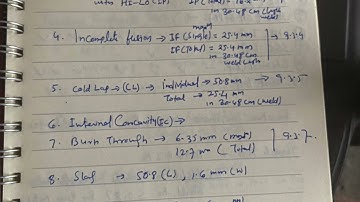 with HI-LO (IF) IF(Total) = 16.2
in 30.48 cm (weld
max
4. Incomplete fusion → IF (Single) = 25.4 mm
IF (Total) = 25.4 mm → 9.3.4
in 30.48 cm
weld length
5. Cold Lap → (CL) → individual → 50.8 mm → 9.3.5
Total → 25.4 mm
in 30.48 cm (weld)
6. Internal Concavity (IC) →
7. Burn Through → 6.35 mm (max) 9.3.7
12.7 mm (Total)
8. Slag → 50.8 (L), 1.6 mm (W)